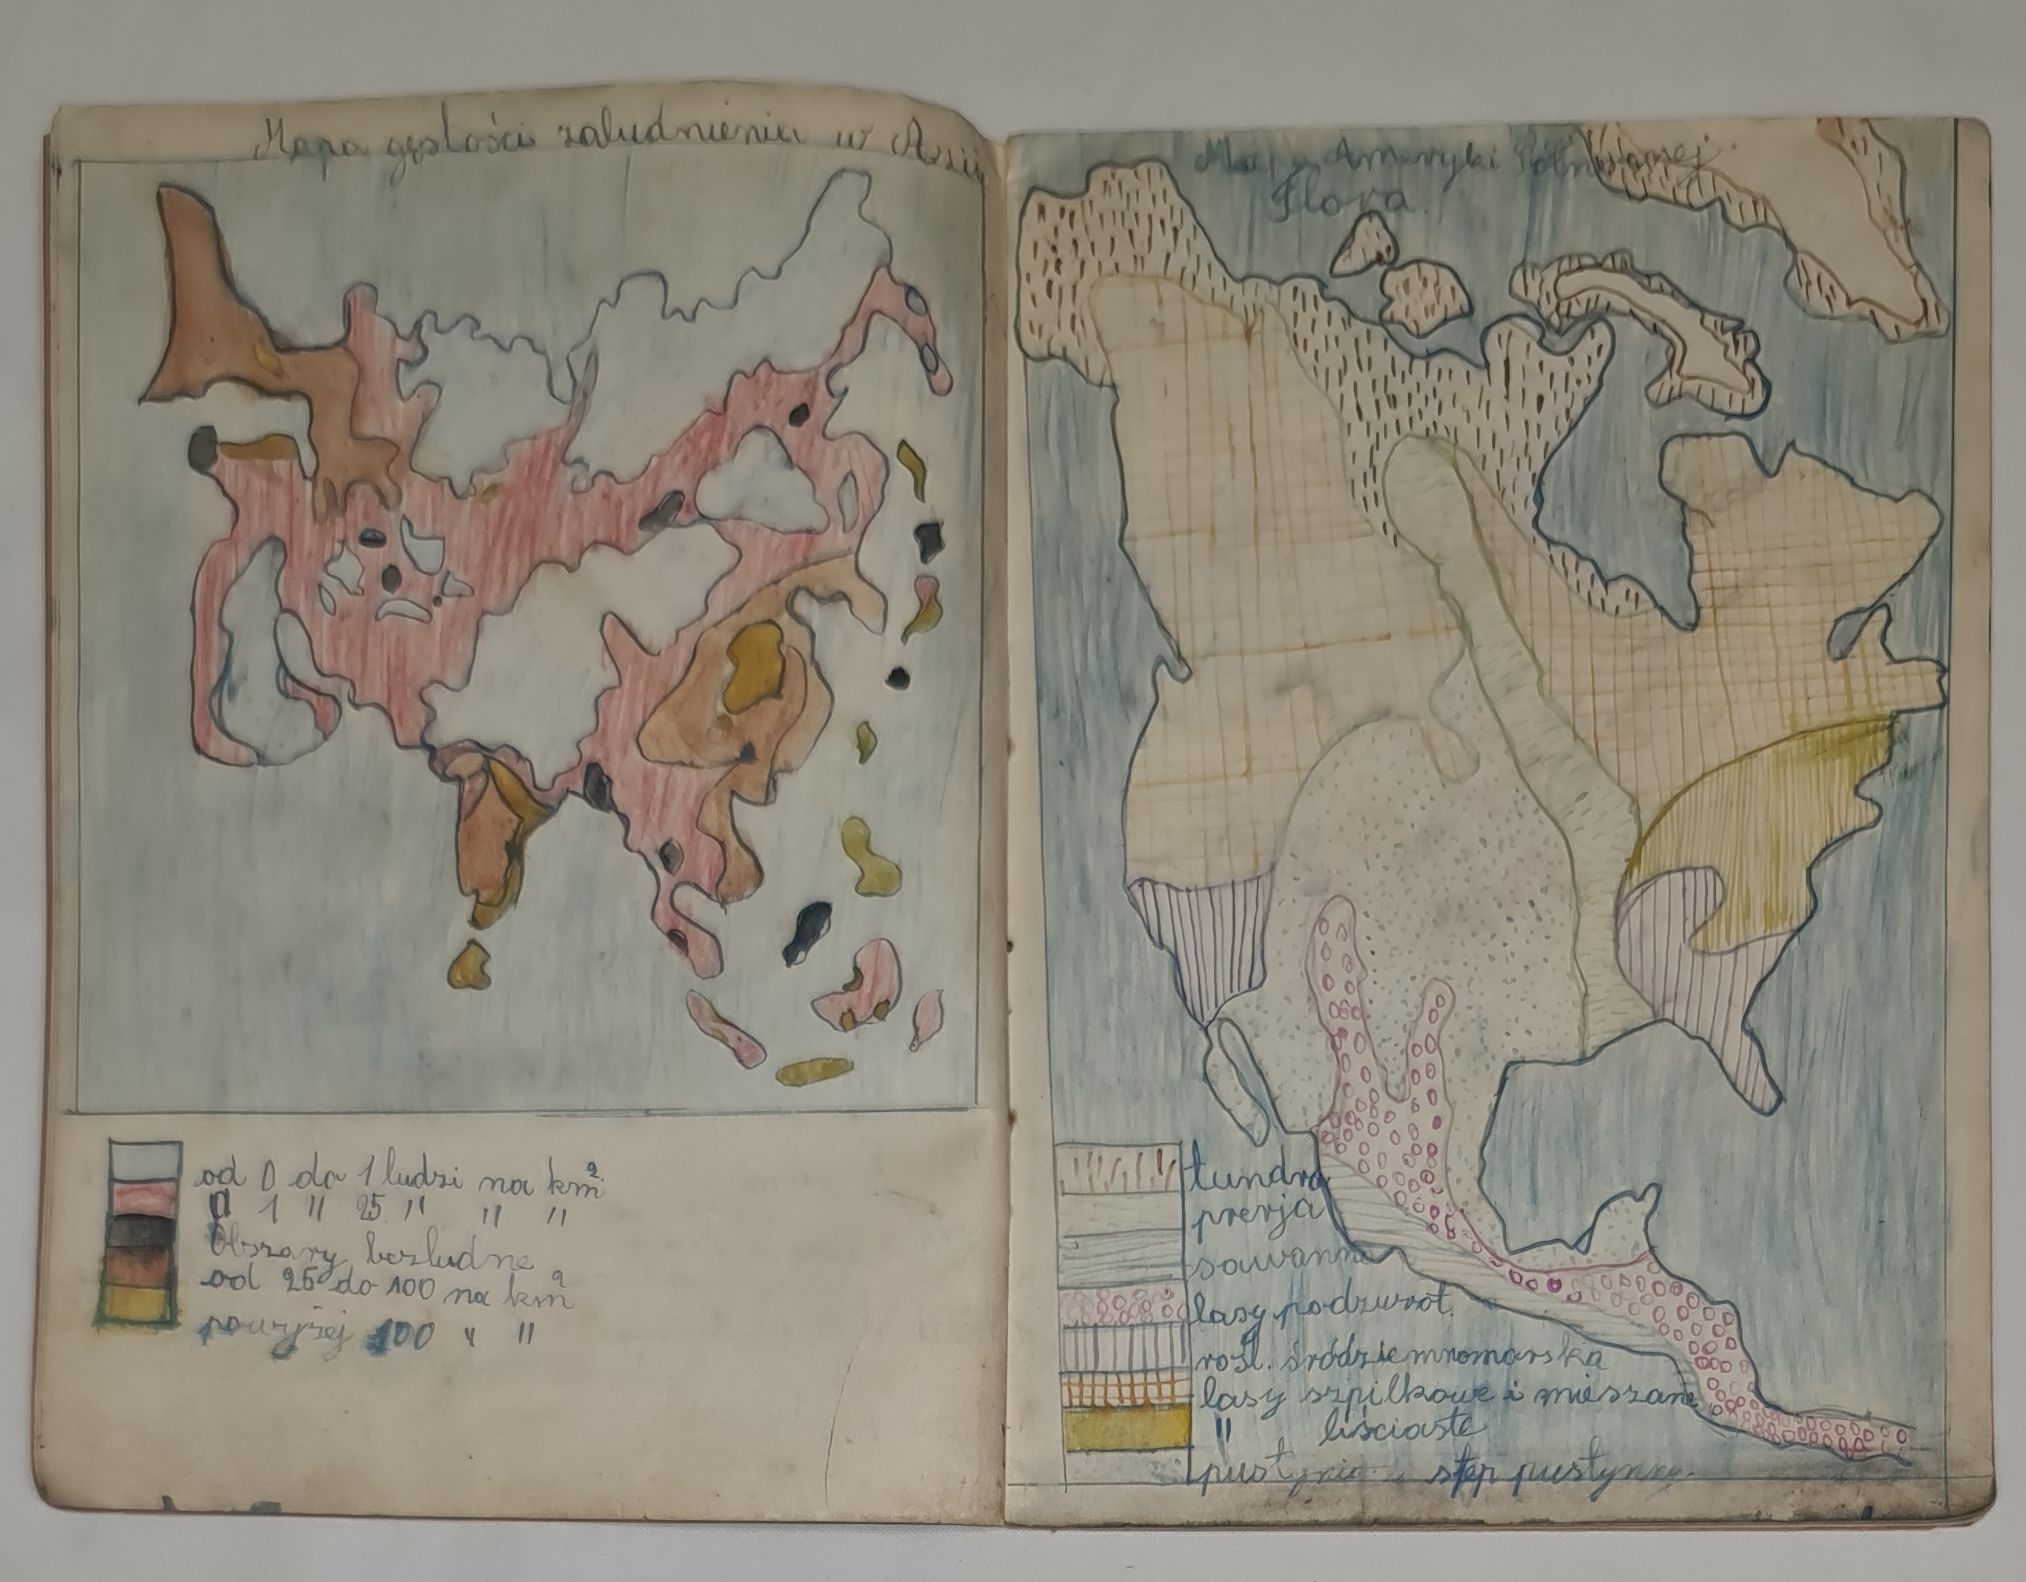 Mapa gęstości zaludnienia w Azji
od 0 do 1 ludzi na km²
" 1 " 25 " " "
Obszary bezludne
od 25 do 100 na km²
powyżej 100 " "
Mapa Ameryki Północnej.
Flora.
tundra
prerja
sawanna
lasy podzwrot.
rośl. śródziemnomorska
lasy szpilkowe i mieszane
" liściaste
pustynia step pustynny.